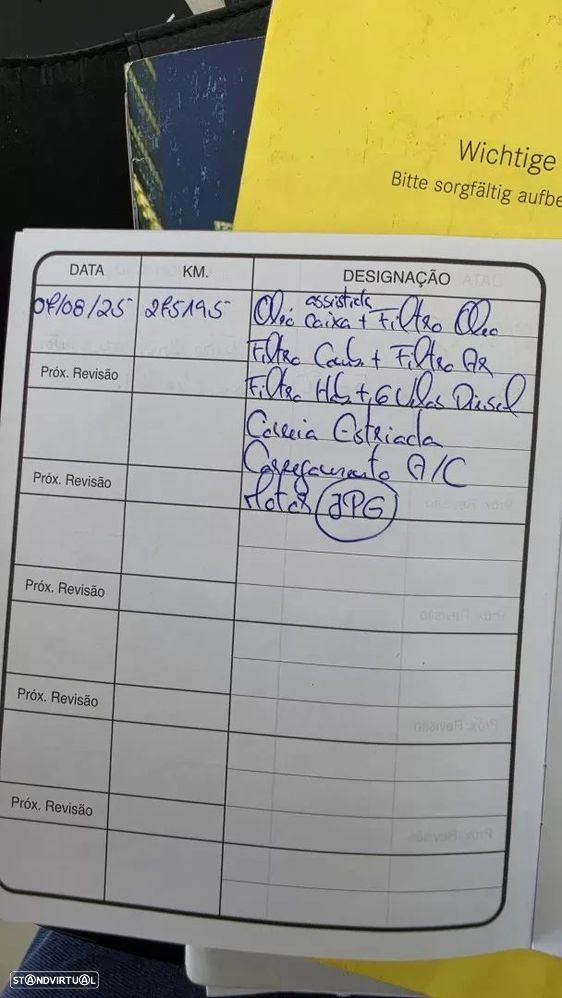 Wichtige
Bitte sorgfältig aufbe
DATA KM. DESIGNAÇÃO
07/08/25 275195 Oleo assistida caixa + Filtro Oleo
Filtro Comb + Filtro Ar
Próx. Revisão
Filtro Hab + 6 Velas Diesel
Correia Estriada
Carregamento A/C
Próx. Revisão
Motor JPG
Próx. Revisão
Próx. Revisão
Próx. Revisão
STANDVIRTUAL